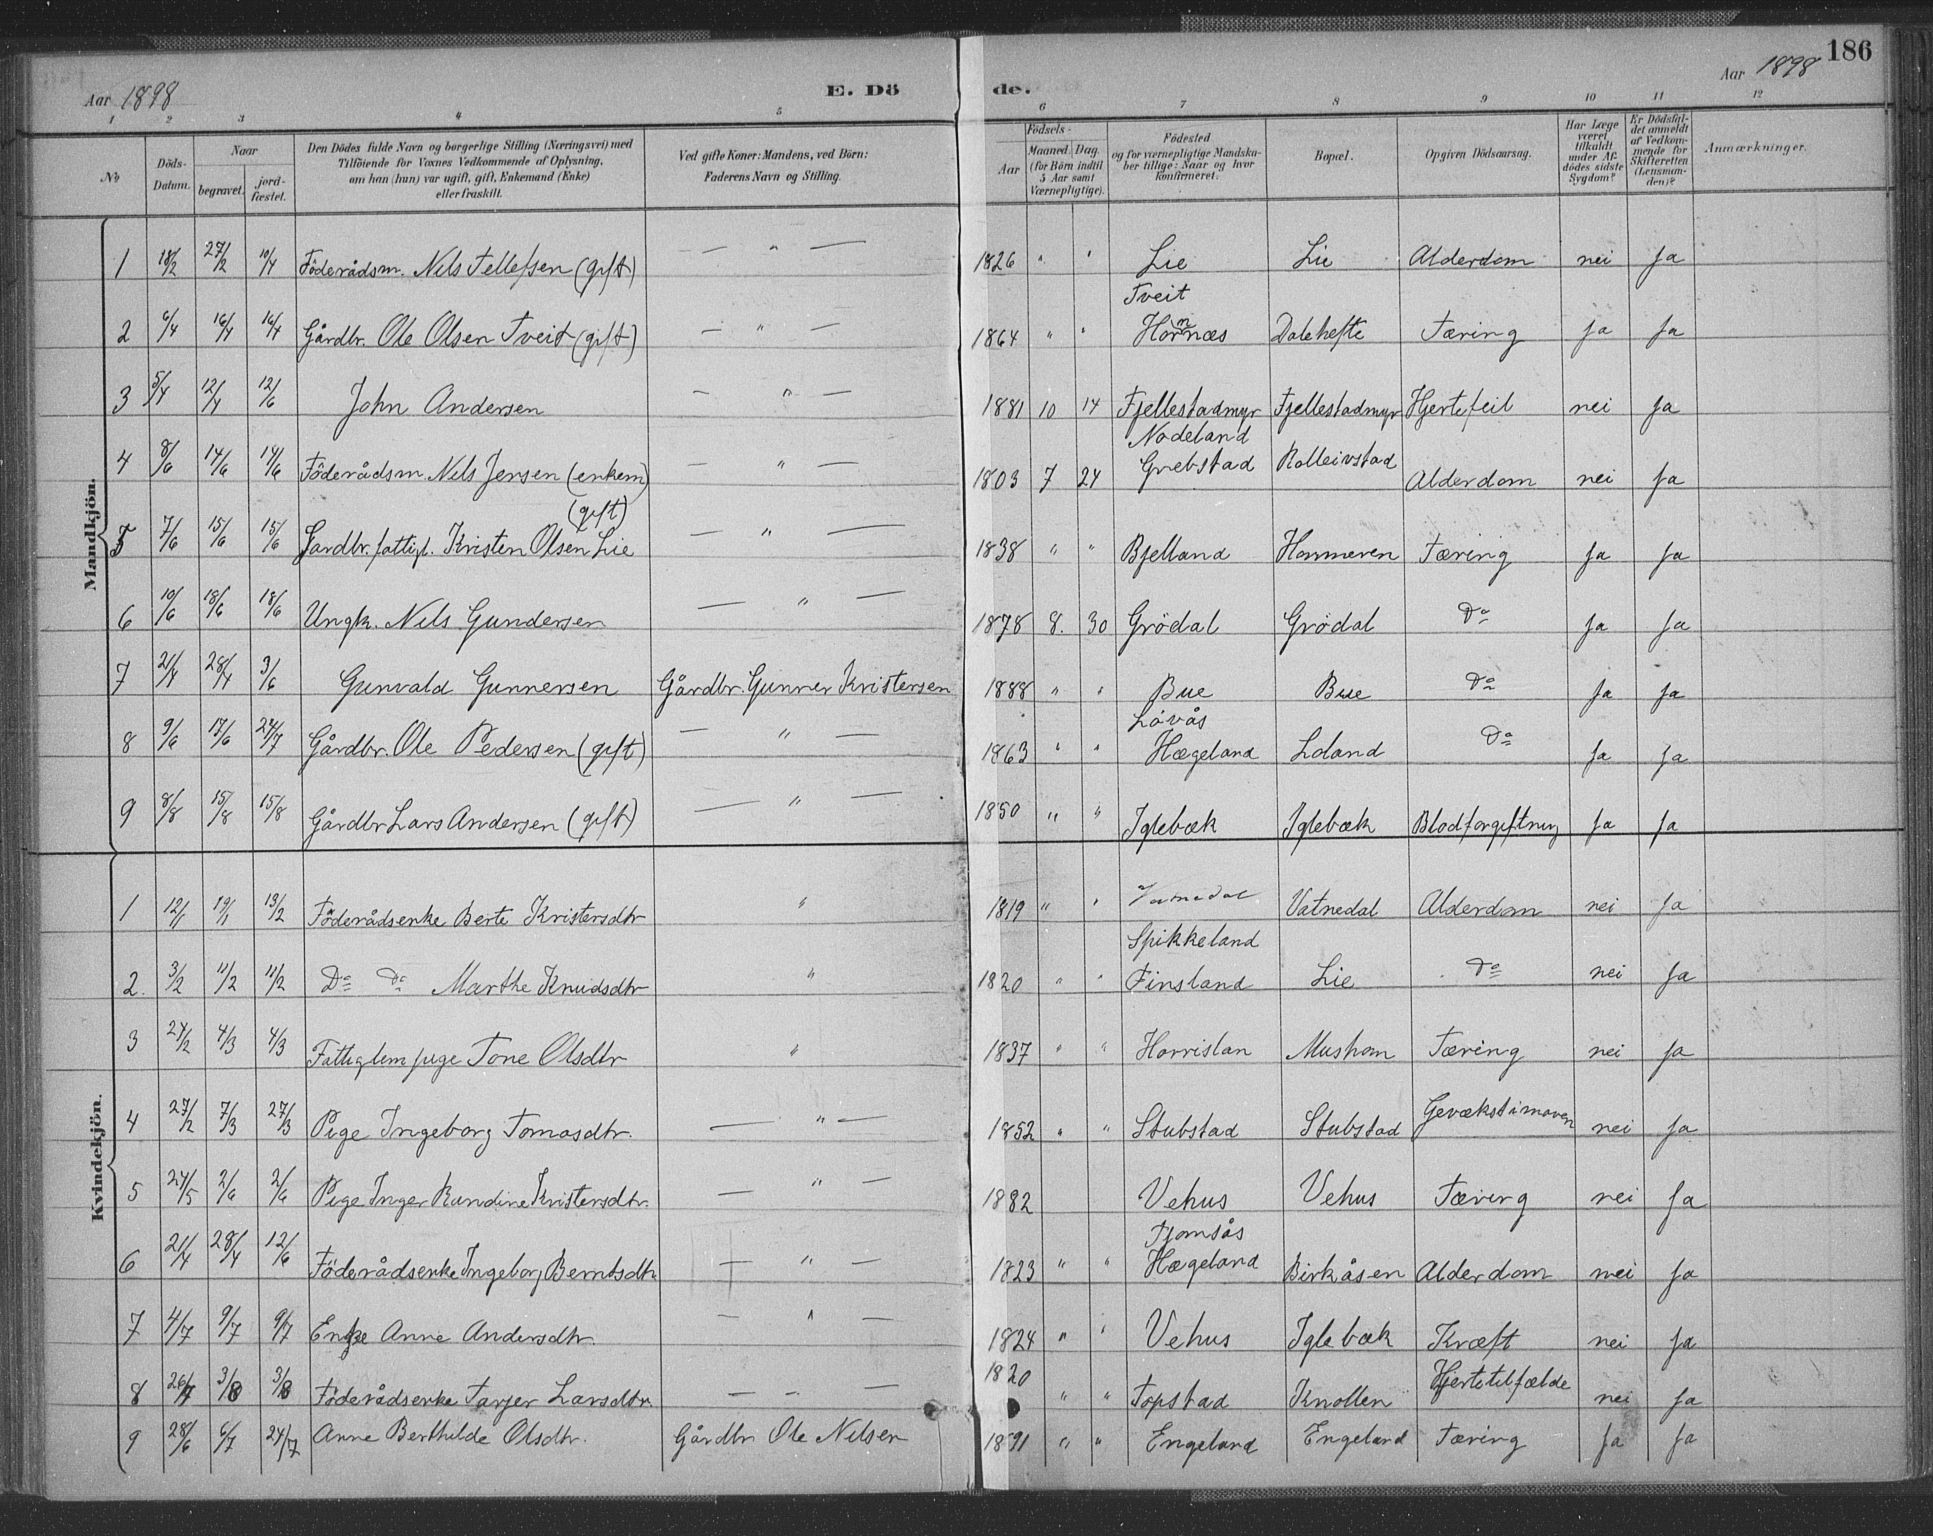 186
Aar 1898
E. Dö
de.
Aar 1898
1 2 3 4 5 6 7 8 9 10 11 12
No
Döds-Datum.
Naar
begravet.
jord-fæstet.
Den Dödes fulde Navn og borgerlige Stilling (Næringsvei) med
Tilföiende for Voxnes Vedkommende af Oplysning,
om han (hun) var ugift, gift, Enkemand (Enke)
eller fraskilt.
Ved gifte Koner: Mandens, ved Börn:
Faderens Navn og Stilling.
Födsels-
Aar
Maaned. Dag.
(for Börn indtil
5 Aar samt
Værnepligtige).
Födested
og for værnepligtige Mandska-
ber tillige: Naar og hvor
konfirmeret.
Bopæl.
Opgiven Dödsaarsag.
Har Læge
været
tilkaldt
under Af-
dödes sidste
Sygdom?
Er Dödsfal-
det anmeldt
af Vedkom-
mende for
Skifteretten
(Lensman-
den)?
Anmærkninger.
Mandkjön.
1 18/2 27/2 10/4 Föderådsm. Nils Tellefsen (gift) — " — 1826 " " Lie Lie Alderdom nei Ja
2 6/4 16/4 16/4 Gårdbr. Ole Olsen Tveit (gift) — " — 1864 " " Tveit Hornnæs Dalehefte Tæring Ja Ja
3 5/4 12/4 12/6 John Andersen — " — 1881 10 14 Fjellestadmyr Fjellestadmyr Hjertefeil nei Ja
4 8/6 14/6 14/6 Föderådsm. Nils Jensen (enkem) — " — 1803 7 24 Nodeland Grebstad Rolleivstad Alderdom nei Ja
5 7/6 15/6 15/6 Gardbr. fattigl. Kristen Olsen Lie (gift) — " — 1838 " " Bjelland Hommeren Tæring Ja Ja
6 10/6 18/6 18/6 Ungk. Nils Gundersen — " — 1878 8. 30 Grödal Grödal Do Ja Ja
7 21/4 28/4 3/6 Gunvald Gunnersen Gårdbr. Gunner Kristensen 1888 " " Bue Bue Do Ja Ja
8 9/6 17/6 24/7 Gårdbr. Ole Pedersen (gift) — " — 1863 " " Lövås Hægeland Loland Do Ja Ja
9 8/8 15/8 15/8 Gårdbr Lars Andersen (gift) — " — 1850 " " Iglebæk Iglebæk Blodforgiftning Ja Ja
Kvindekjön.
1 12/1 19/1 13/2 Föderådsenke Berte Kristensdtr " 1819 " " Vatnedal Vatnedal Alderdom nei Ja
2. 3/2 11/2 11/2 Do Do Marthe Knudsdtr " 1820 " " Spikkeland Finsland Lie Do nei Ja
3 24/2 4/3 4/3 Fattiglem pige Tone Olsdtr " 1837 " " Horrislan Mushom Tæring nei Ja
4 27/2 7/3 27/3 Pige Ingeborg Tomasdtr. — " — 1852 " " Stubstad Stubstad Gevækst i maven nei Ja
5 24/5 2/6 2/6 Pige Inger Randine Kristensdtr. — " — 1882 Vehus Vehus Tæring nei Ja
6 21/4 28/4 12/6 Föderådsenke Ingeborg Berntsdtr — " — 1823 " " Fjomsås Hægeland Birkåsen Alderdom nei Ja
7 4/7 9/7 9/7 Enke Anne Andersdtr. — " — 1824 " " Vehus Iglebæk Kræft nei Ja
8 26/7 3/8 3/8 Föderådsenke Tarjer Larsdtr — " — 1820 " " Topstad Knollen Hjertetilfælde nei Ja
9 28/6 6/7 24/7 Anne Berthilde Olsdtr. Gårdbr Ole Nilsen 1891 " " Engeland Engeland Tæring Ja Ja